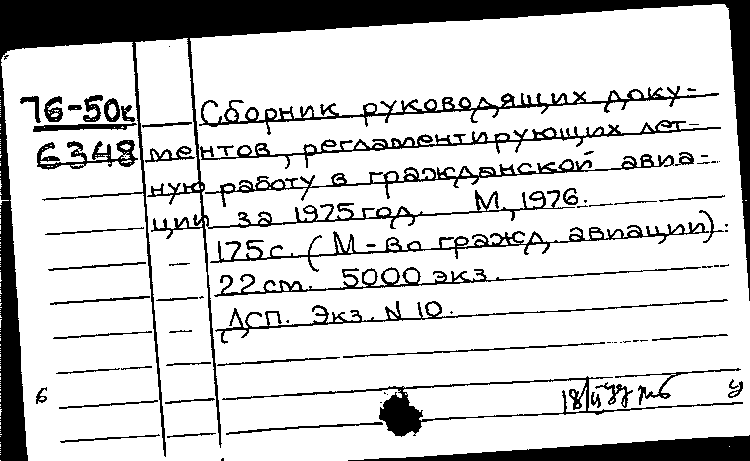 76-50к Сборник руководящих доку-
6348 ментов, регламентирующих лет-
ную работу в гражданской авиа-
ции за 1975 год. М., 1976.
175 с. (М-во гражд. авиации).
22 см. 5000 экз.
ДСП. Экз. N 10.
6
18/II
у